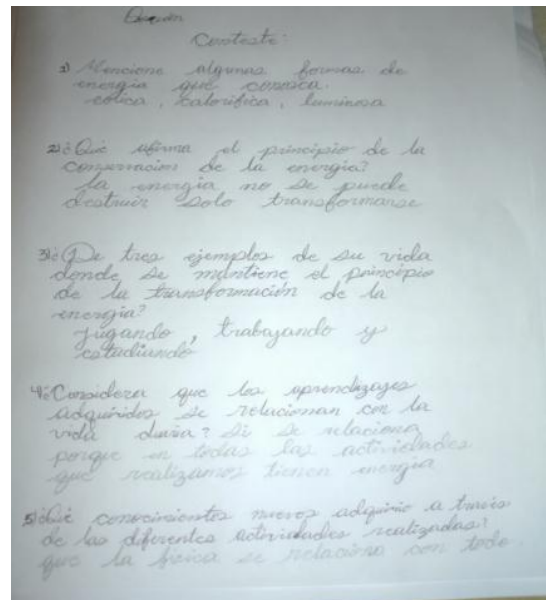 Conteste:
1) Mencione algunas formas de
energía que conosca.
eólica, calorifica, luminosa
2) ¿Qué afirma el principio de la
conservación de la energía?
la energía no se puede
destruir solo transformarse
3) ¿De tres ejemplos de su vida
donde se mantiene el principio
de la transformación de la
energía?
jugando, trabajando y
estudiando
4) ¿Considera que los aprendizajes
adquiridos se relacionan con la
vida diaria? Si se relaciona
porque en todas las actividades
que realizamos tienen energía
5) ¿Qué conocimientos nuevos adquirio a través
de las diferentes actividades realizadas?
que la física se relaciona con todo